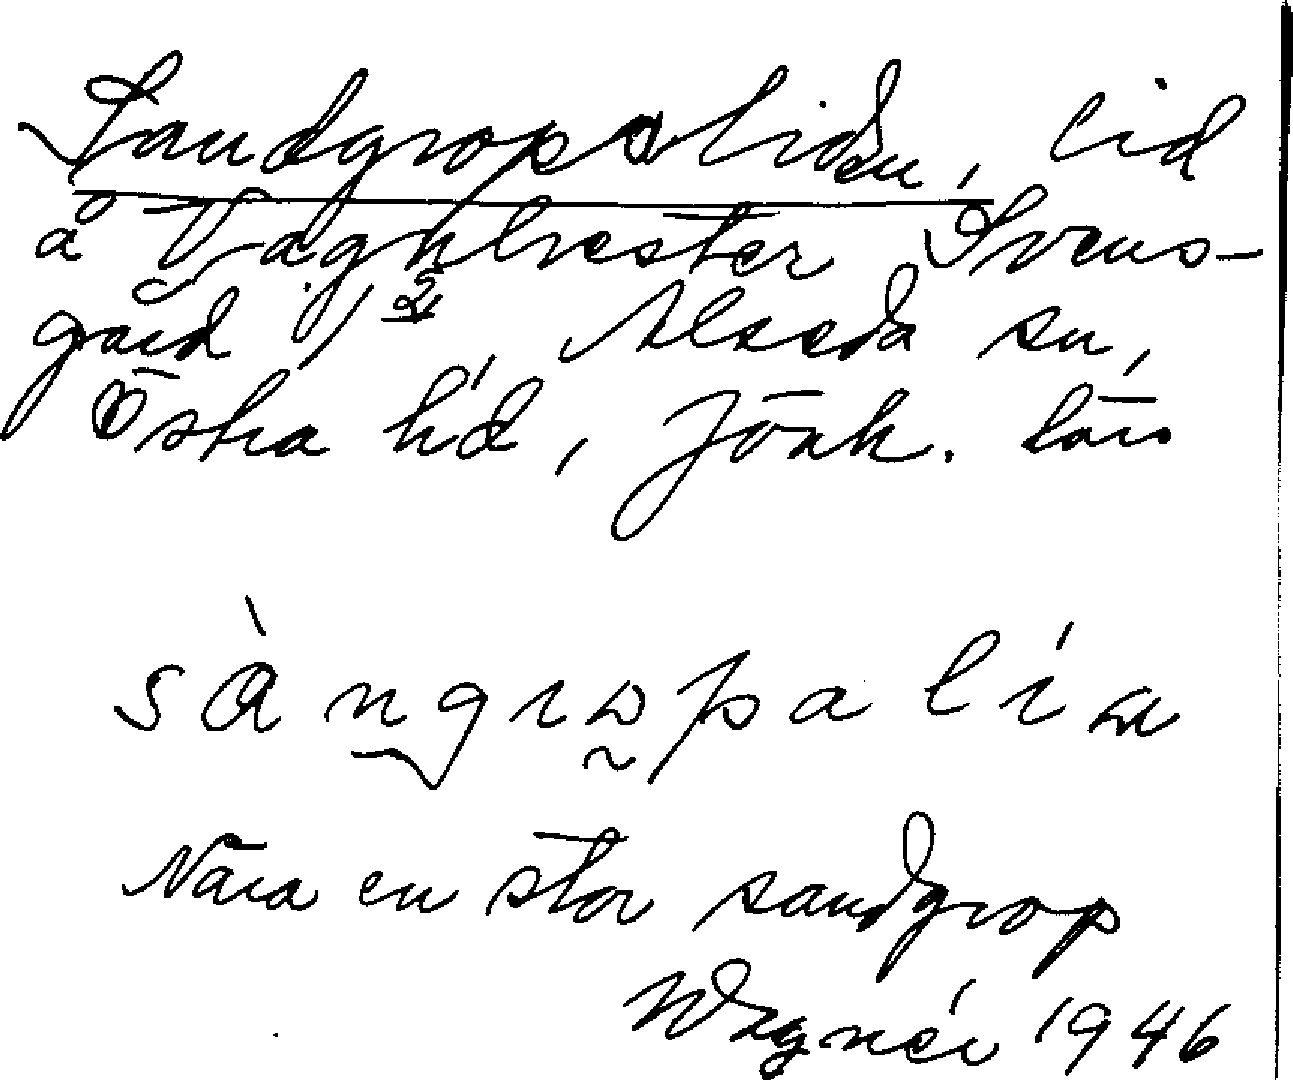 Sandgropsliden, lid
å Vaghvester Svens-
gård 1/2, Alseda sn,
Östra h'd, Jönk. län
sàngropa lía
Nära en stor sandgrop
Wagnér 1946